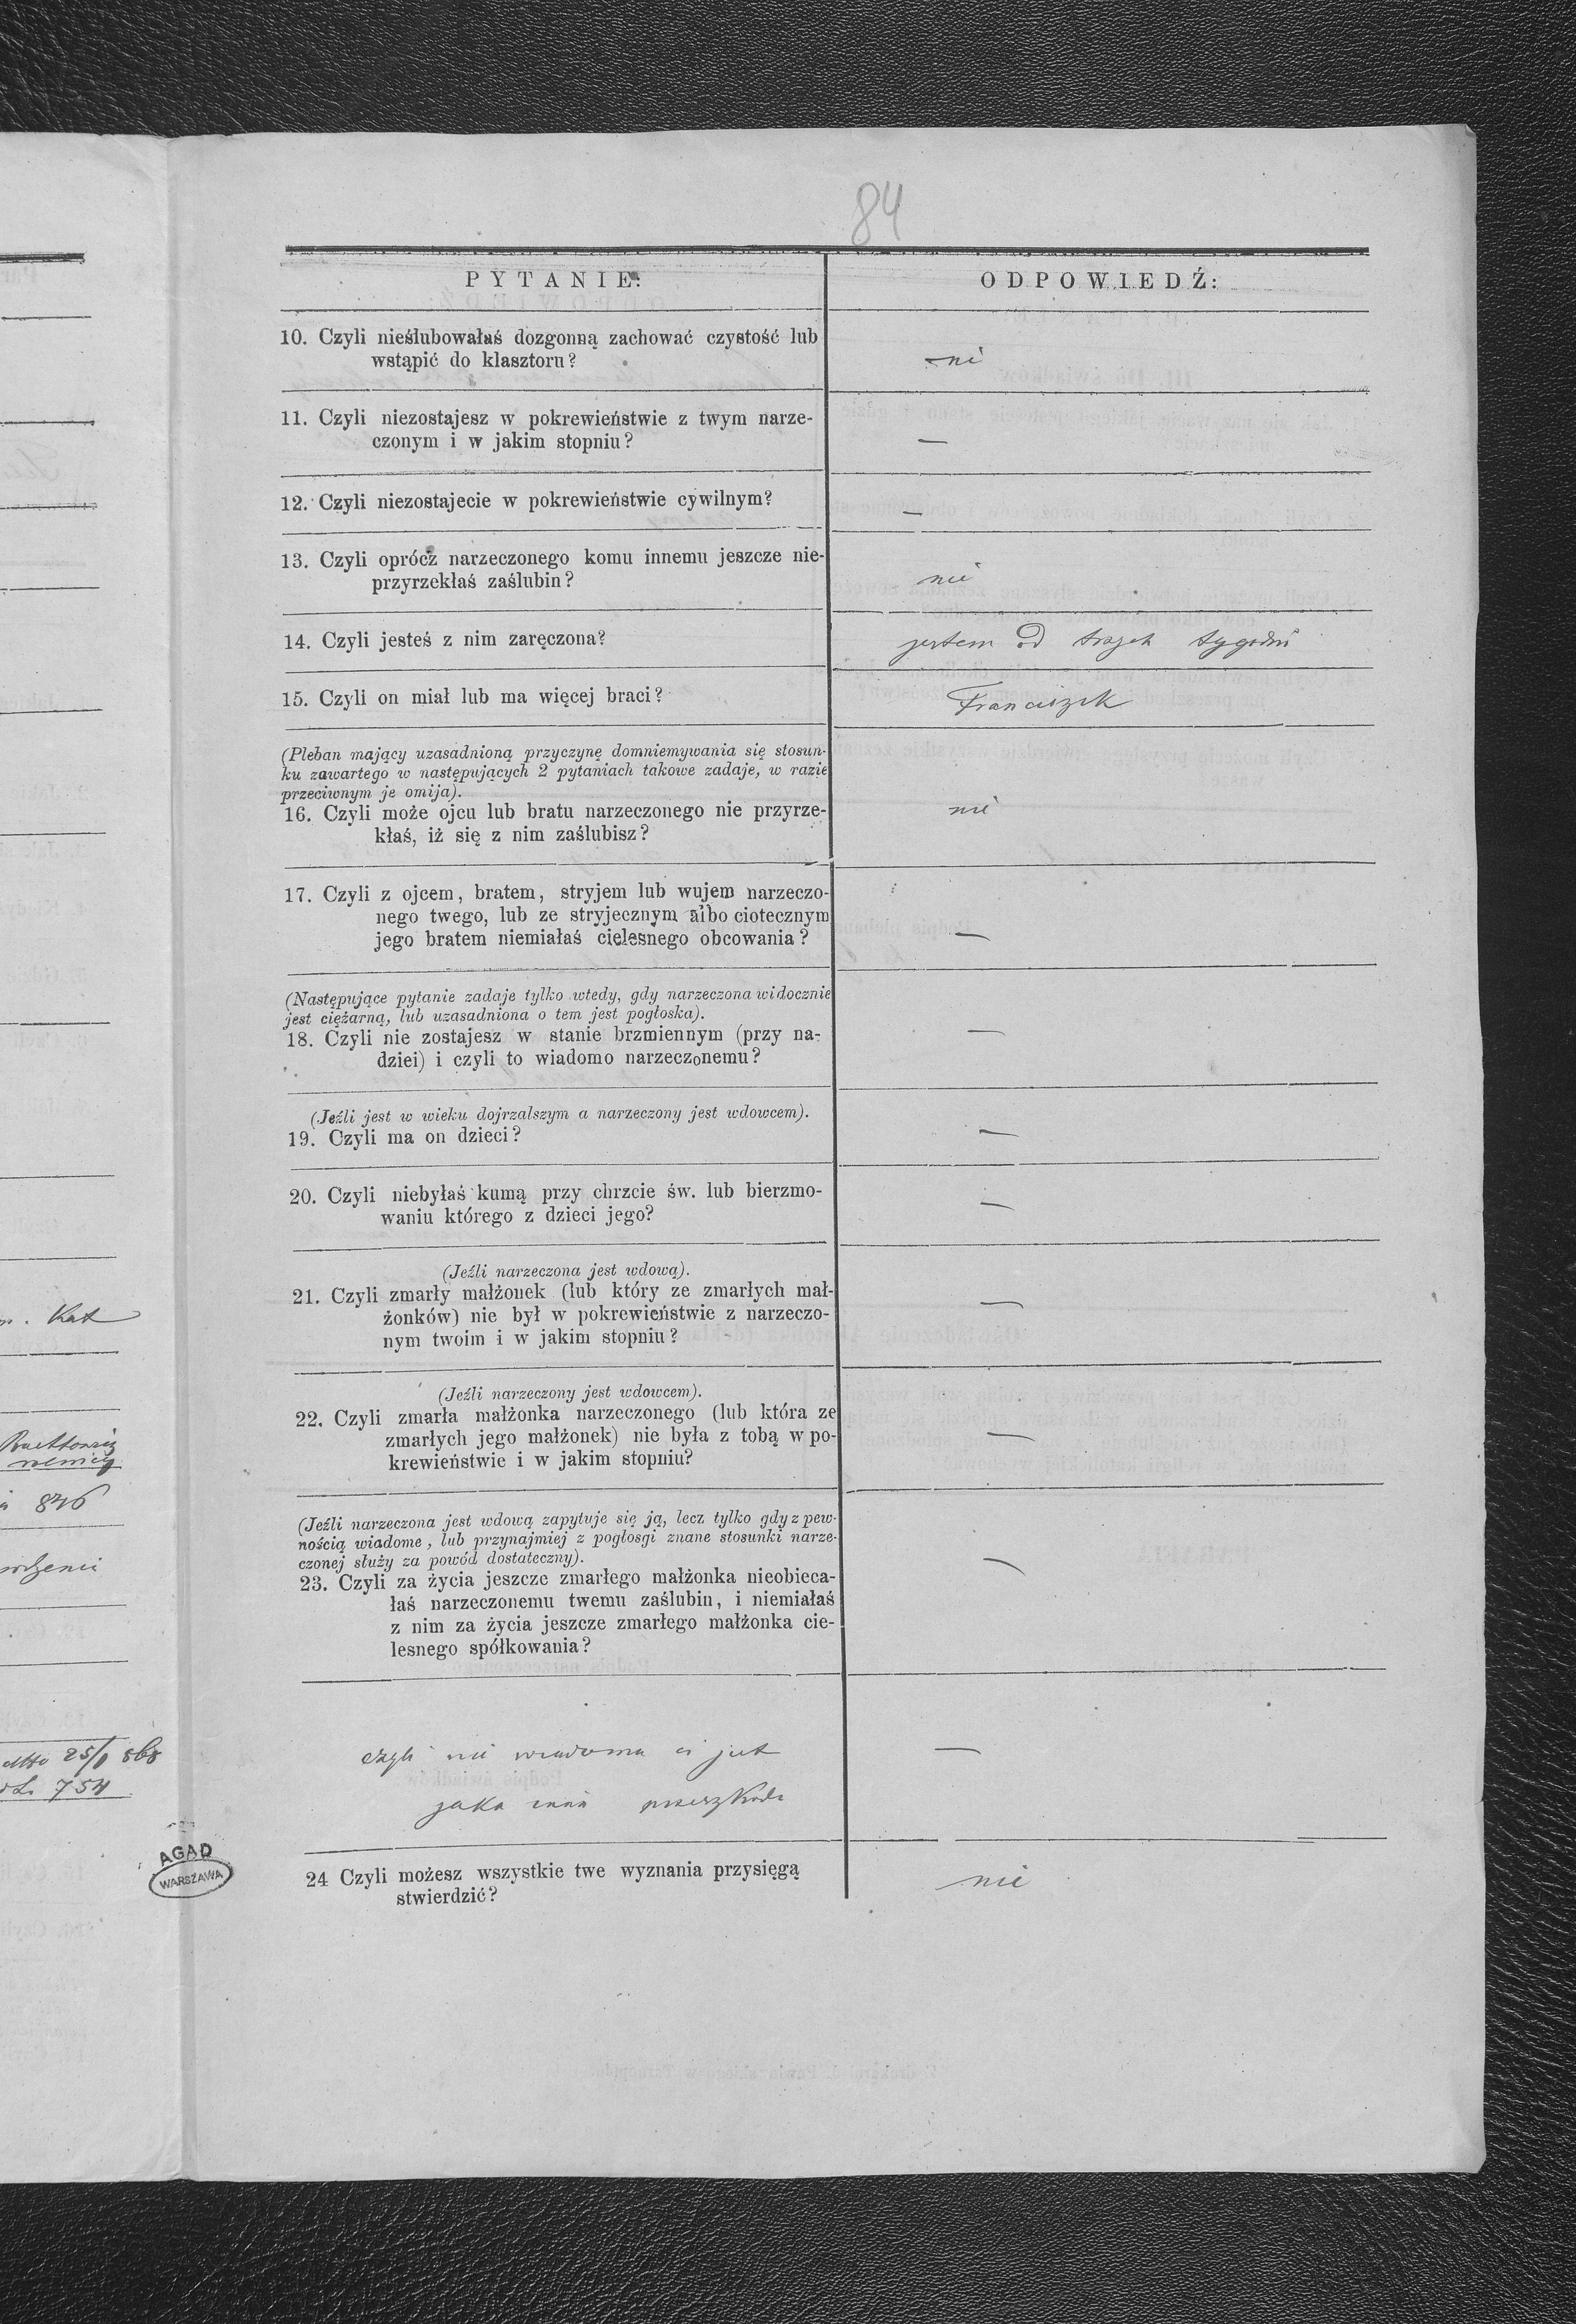 84
PYTANIE:
ODPOWIEDŹ:
10. Czyli nieślubowałaś dozgonną zachować czystość lub
wstąpić do klasztoru?
ni
11. Czyli niezostajesz w pokrewieństwie z twym narze-
czonym i w jakim stopniu?
—
12. Czyli niezostajecie w pokrewieństwie cywilnym?
—
13. Czyli oprócz narzeczonego komu innemu jeszcze nie-
przyrzekłaś zaślubin?
nie
14. Czyli jesteś z nim zaręczona?
jestem od trzech tygodni
15. Czyli on miał lub ma więcej braci?
Franciszek
(Pleban mający uzasadnioną przyczynę domniemywania się stosun-
ku zawartego w następujących 2 pytaniach takowe zadaje, w razie
przeciwnym je omija).
16. Czyli może ojcu lub bratu narzeczonego nie przyrze-
kłaś, iż się z nim zaślubisz?
nie
17. Czyli z ojcem, bratem, stryjem lub wujem narzeczo-
nego twego, lub ze stryjecznym albo ciotecznym
jego bratem niemiałaś cielesnego obcowania?
—
(Następujące pytanie zadaje tylko wtedy, gdy narzeczona widocznie
jest ciężarną, lub uzasadniona o tem jest pogłoska).
18. Czyli nie zostajesz w stanie brzmiennym (przy na-
dziei) i czyli to wiadomo narzeczonemu?
—
(Jeźli jest w wieku dojrzalszym a narzeczony jest wdowcem).
19. Czyli ma on dzieci?
—
20. Czyli niebyłaś kumą przy chrzcie św. lub bierzmo-
waniu którego z dzieci jego?
—
(Jeźli narzeczona jest wdową).
21. Czyli zmarły małżonek (lub który ze zmarłych mał-
żonków) nie był w pokrewieństwie z narzeczo-
nym twoim i w jakim stopniu?
—
(Jeźli narzeczony jest wdowcem).
22. Czyli zmarła małżonka narzeczonego (lub która ze
zmarłych jego małżonek) nie była z tobą w po-
krewieństwie i w jakim stopniu?
—
(Jeźli narzeczona jest wdową zapytuje się ją, lecz tylko gdy z pew-
nością wiadome, lub przynajmiej z pogłosgi znane stosunki narze-
czonej służy za powód dostateczny).
23. Czyli za życia jeszcze zmarłego małżonka nieobieca-
łaś narzeczonemu twemu zaślubin, i niemiałaś
z nim za życia jeszcze zmarłego małżonka cie-
lesnego spółkowania?
—
czyli nie wiadoma ci jest
jaka inna przeszkoda
—
24 Czyli możesz wszystkie twe wyznania przysięgą
stwierdzić?
nie
Kat
846
25/1 868
754
AGAD
WARSZAWA